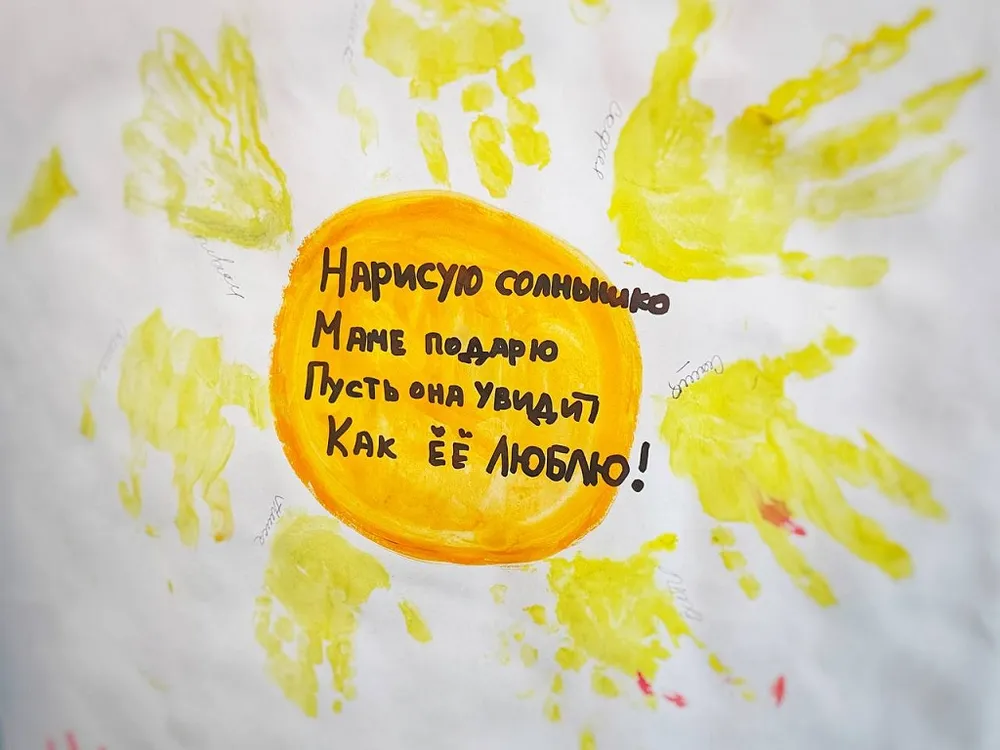 Нарисую солнышко
Маме подарю
Пусть она увидит
Как ЁЁ люблю!